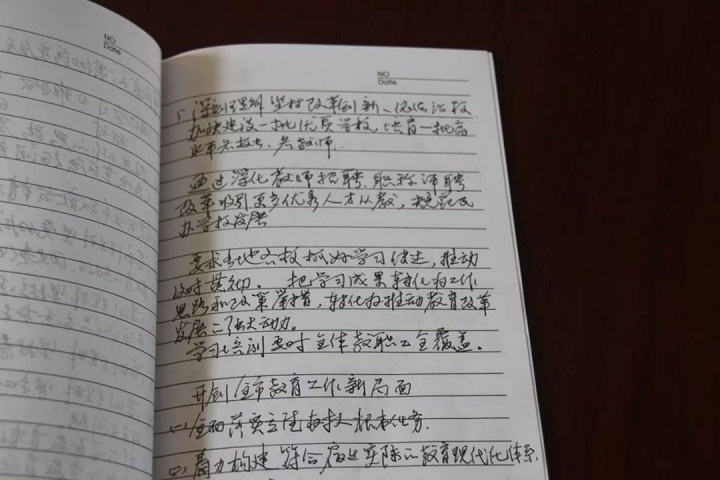 NO
Date
NO
Date
5. 深刻理解坚持改革创新、依法治教
加快建设一批优质学校,培育一批高
水平名校长、名教师.
通过深化教师招聘、职称评聘
改革吸引更多优秀人才从教,规范民
办学校发展
要求各地各校抓好学习传达,推动
贯彻. 把学习成果转化为工作
思路和政策举措,转化为推动教育改革
发展的强大动力.
学习培训要对全体教职工全覆盖.
开创全市教育工作新局面
(一) 全面落实立德树人根本任务.
(二) 着力构建符合 实际的教育现代化体系.